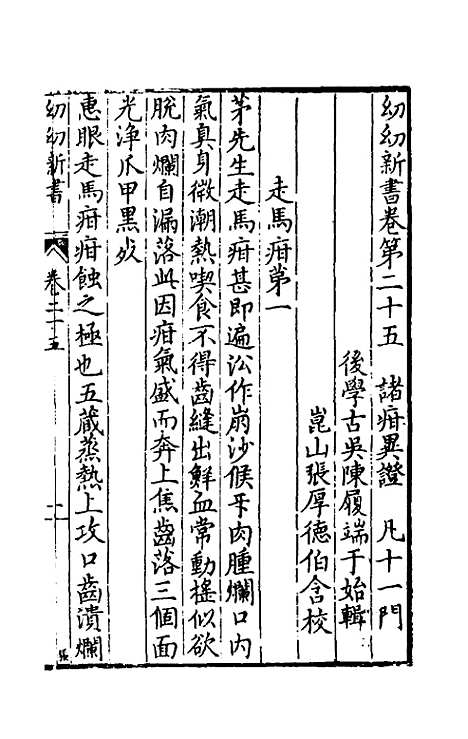 幼幼新書卷第二十五　諸疳異證　凡十一門
後學古吳陳履端于始輯
崑山張厚德伯含校
走馬疳第一
茅先生走馬疳甚即遍沿作崩沙候牙肉腫爛口内
氣臭身微潮熱喫食不得齒縫出鮮血常動搖似欲
脫肉爛自漏落此因疳氣盛而奔上焦齒落三個面
光浄爪甲黑必
惠眼走馬疳疳蝕之極也五蔵蒸熱上攻口齒潰爛
幼幼新書
卷二十五
一